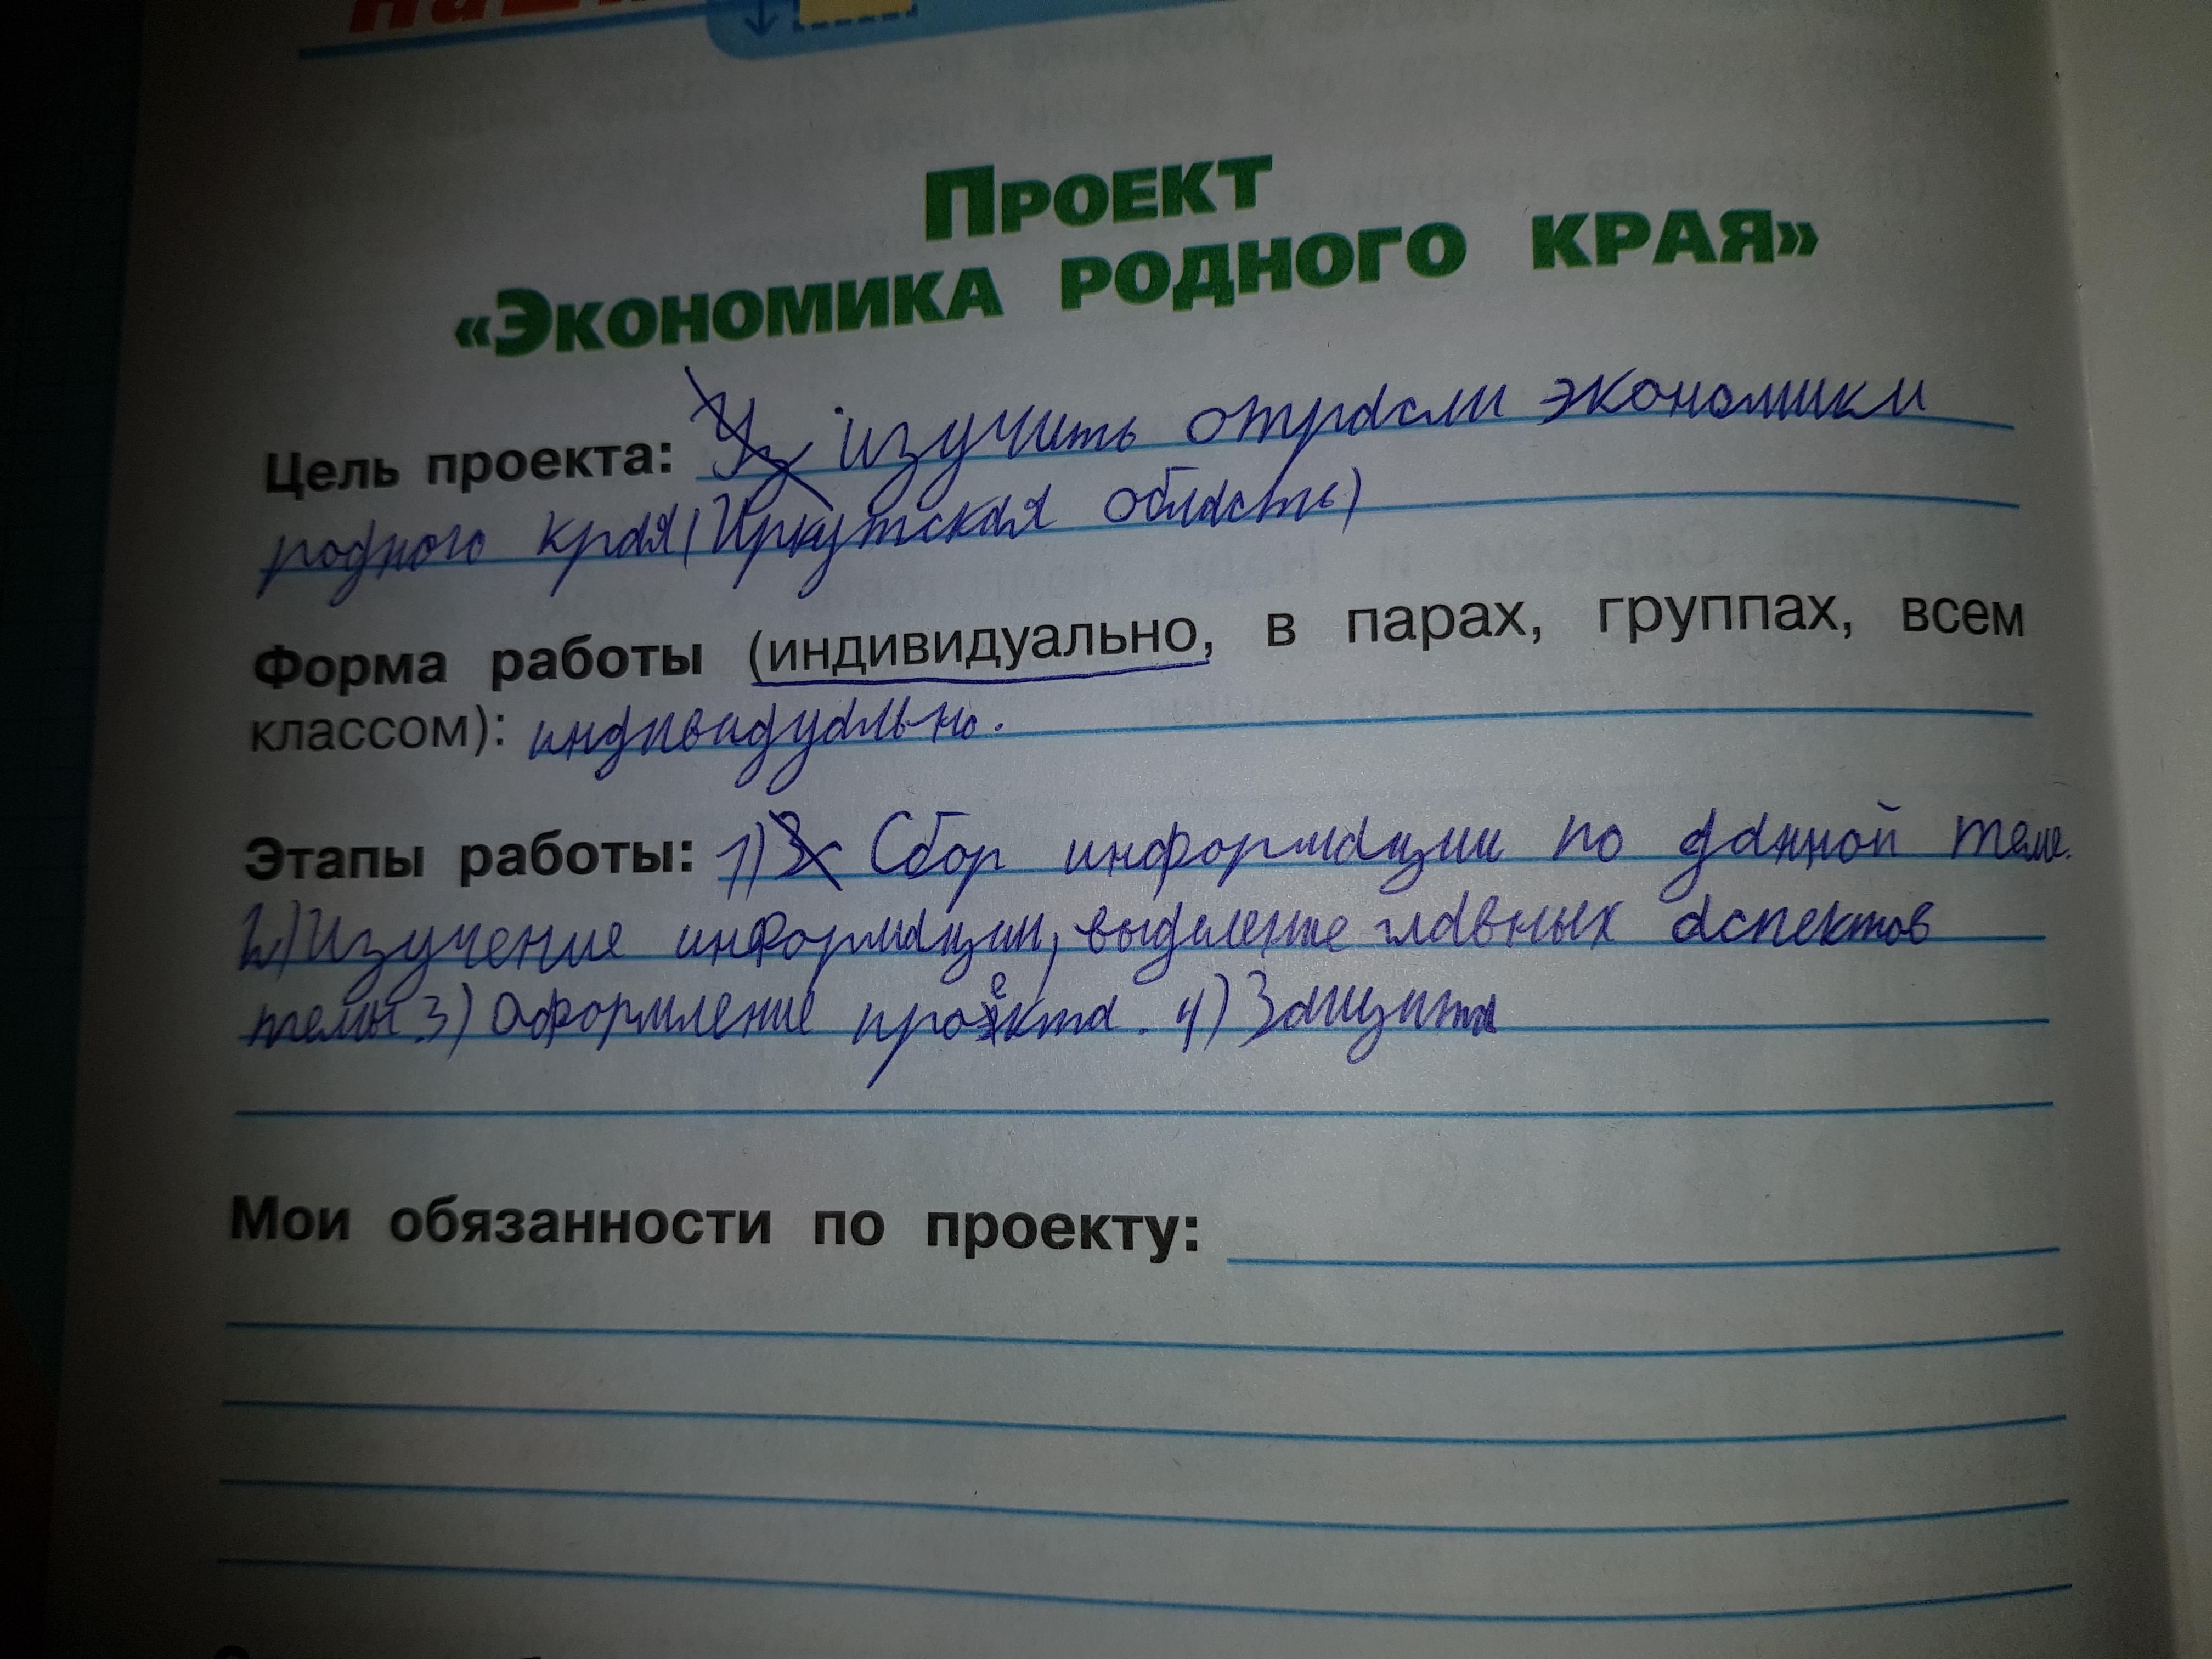 Проект
«Экономика родного края»
Цель проекта: изучить отрасли экономики
родного края (Иркутская область)
Форма работы (индивидуально, в парах, группах, всем
классом): индивидуально.
Этапы работы: 1) Сбор информации по данной теме.
2) Изучение информации, выделение главных аспектов
темы. 3) Оформление проекта. 4) Защита
Мои обязанности по проекту: